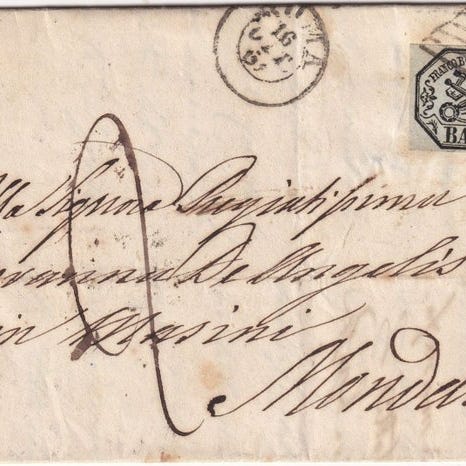 ROMA
16
OTT
FRANCO B
BA
2
lla Signora Pregiatissima
ovanna De Angelis
in Masini
Monda